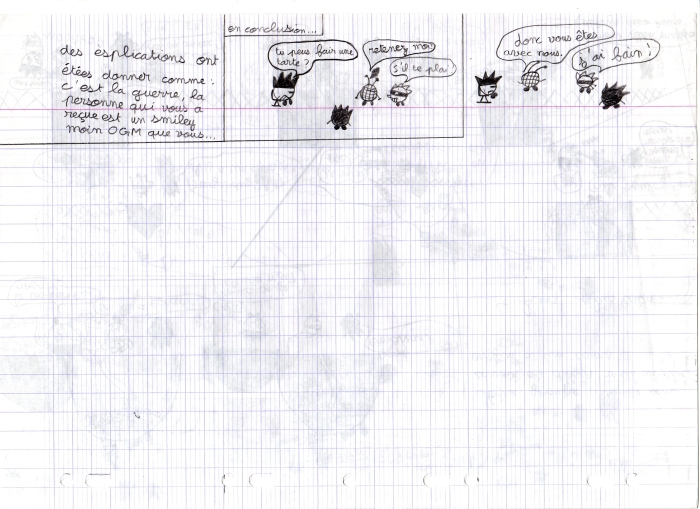 des esplications ont
étées donner comme :
c'est la guerre, la
personne qui vous a
reçue est un smiley
moin OGM que vous...
en conclusion...
tu peus fair une
tarte ?
retenez moi
s'il te plai
donc vous êtes
avec nous.
j'ai faim !